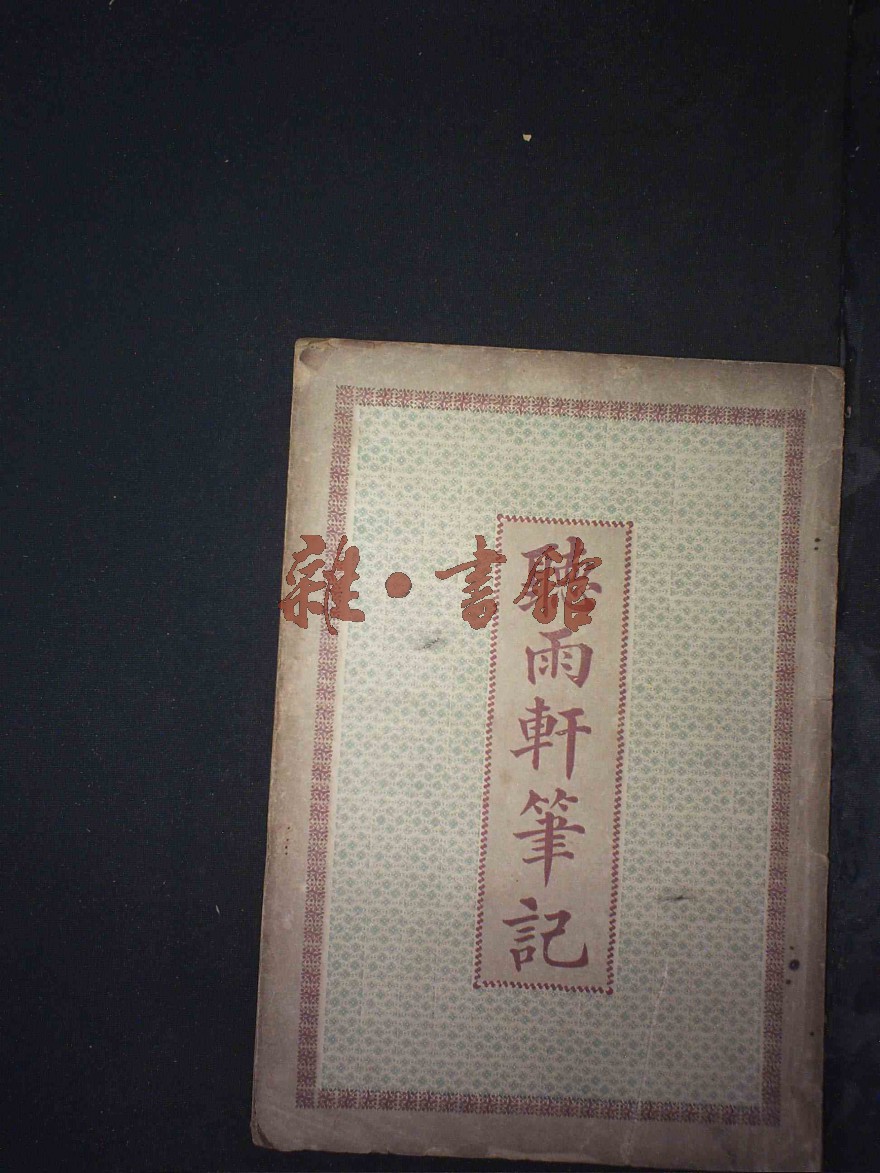 雜·書館
聽雨軒筆記